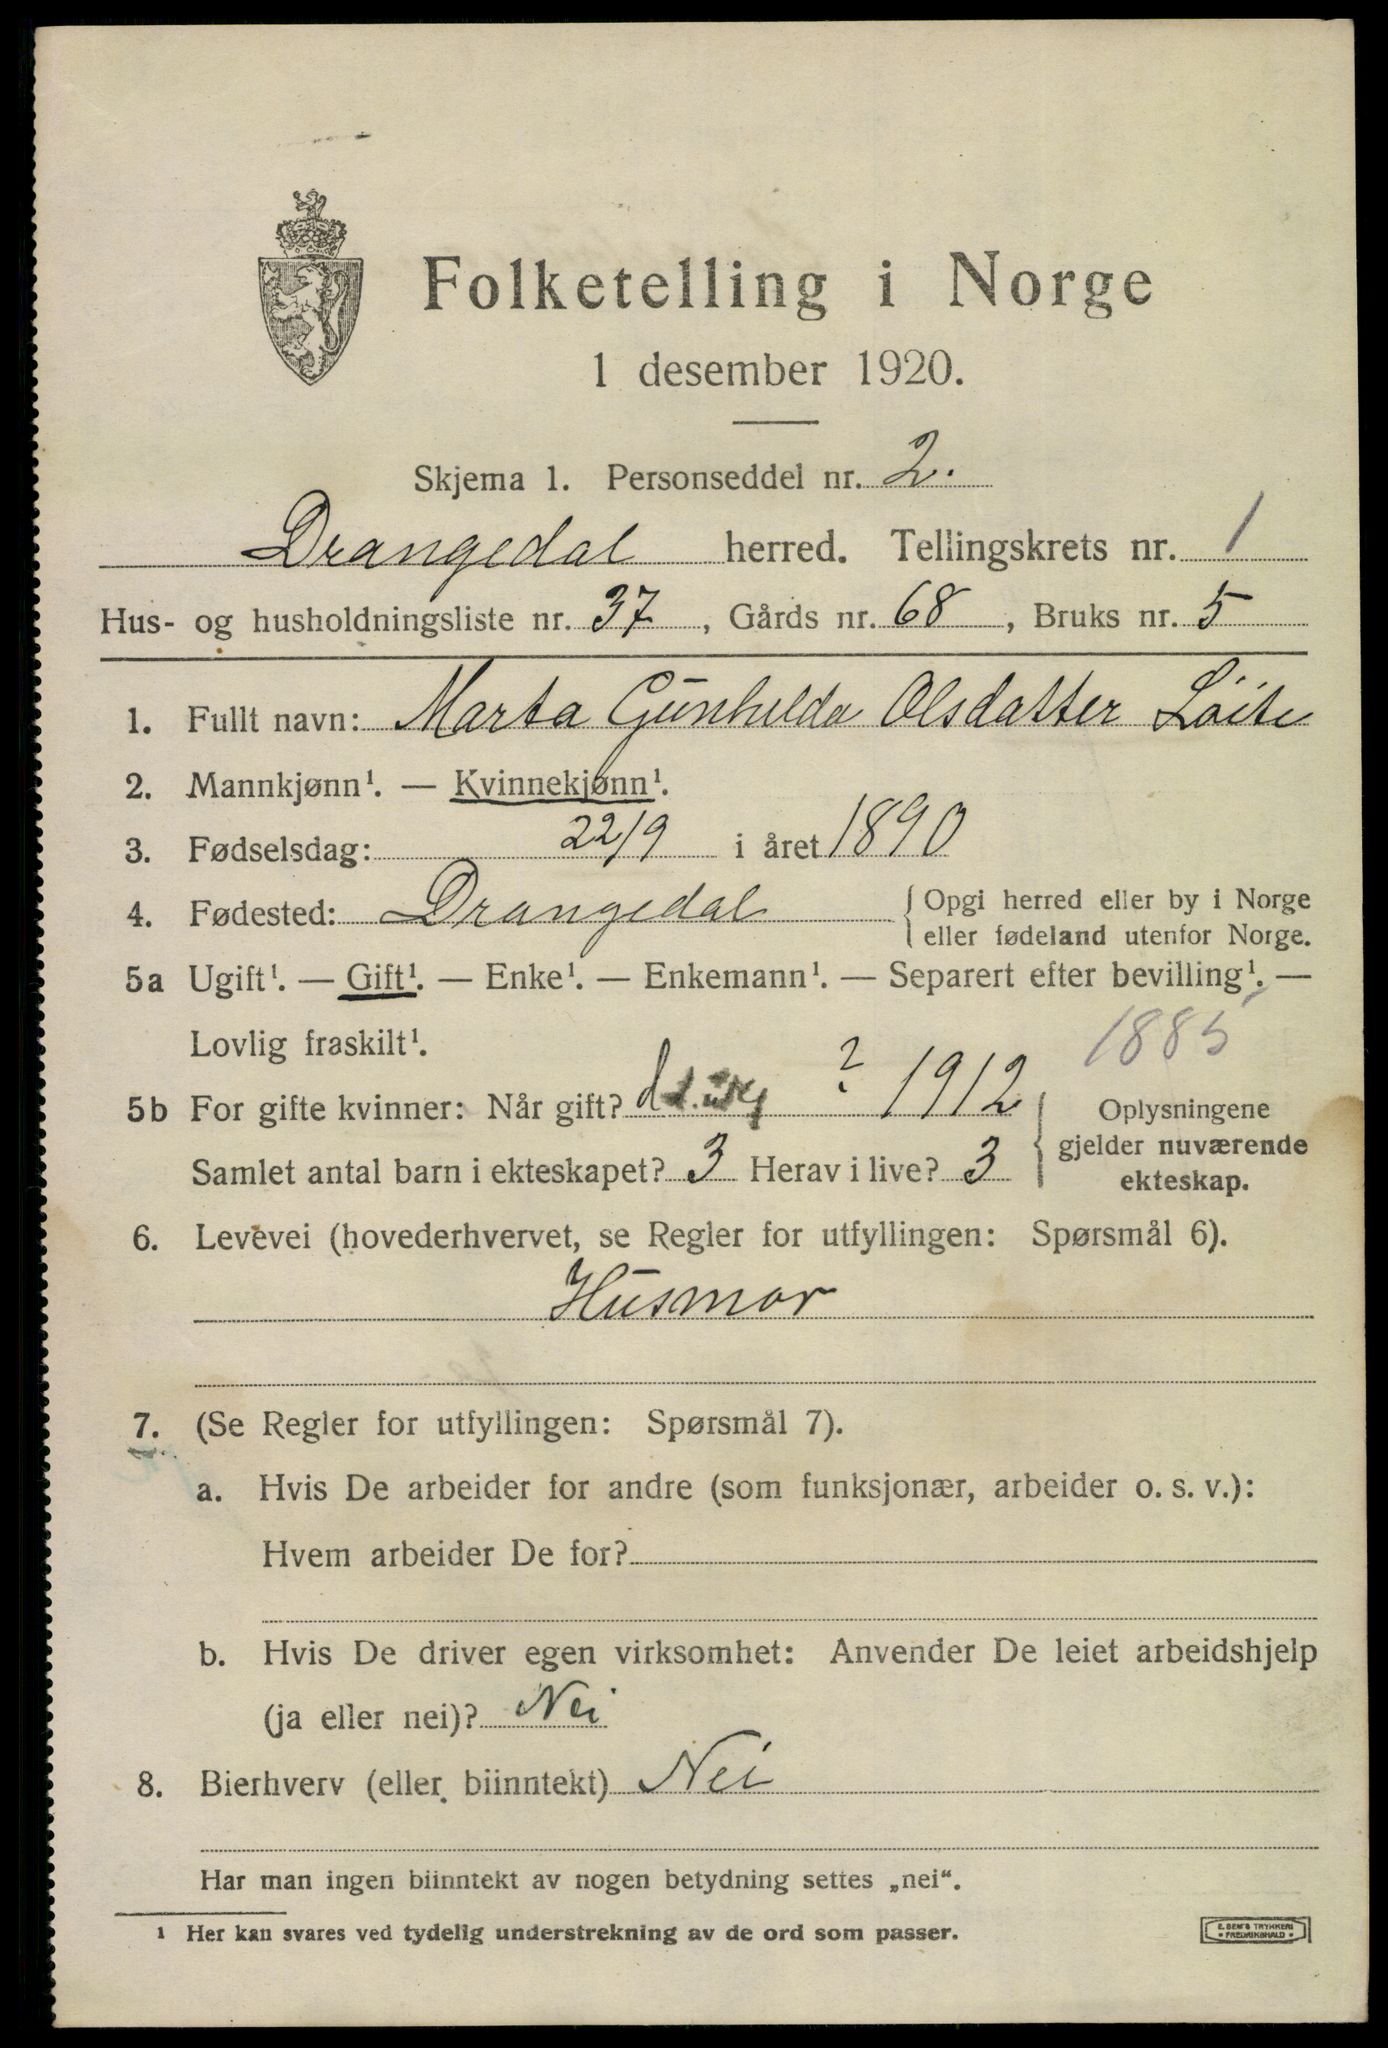 Folketelling i Norge
1 desember 1920.
Skjema 1. Personseddel nr. 2.
Drangedal herred. Tellingskrets nr. 1
Hus- og husholdningsliste nr. 37, Gårds nr. 68, Bruks nr. 5
1. Fullt navn: Marta Gunhilda Olsdatter Löite
2. Mannkjønn¹. — Kvinnekjønn¹.
3. Fødselsdag: 22/9 i året 1890
4. Fødested: Drangedal { Opgi herred eller by i Norge
eller fødeland utenfor Norge.
5a Ugift¹. — Gift¹. — Enke¹. — Enkemann¹. — Separert efter bevilling¹. —
Lovlig fraskilt¹.
1885
5b For gifte kvinner: Når gift? ? 1912
Samlet antal barn i ekteskapet? 3 Herav i live? 3
{ Oplysningene
gjelder nuværende
ekteskap.
6. Levevei (hovederhvervet, se Regler for utfyllingen: Spørsmål 6).
Husmor
7. (Se Regler for utfyllingen: Spørsmål 7).
a. Hvis De arbeider for andre (som funksjonær, arbeider o. s. v.):
Hvem arbeider De for?
b. Hvis De driver egen virksomhet: Anvender De leiet arbeidshjelp
(ja eller nei)? Nei
8. Bierhverv (eller biinntekt) Nei
Har man ingen biinntekt av nogen betydning settes „nei“.
¹ Her kan svares ved tydelig understrekning av de ord som passer.
E. SEM'S TRYKKERI
• FREDRIKSHALD •